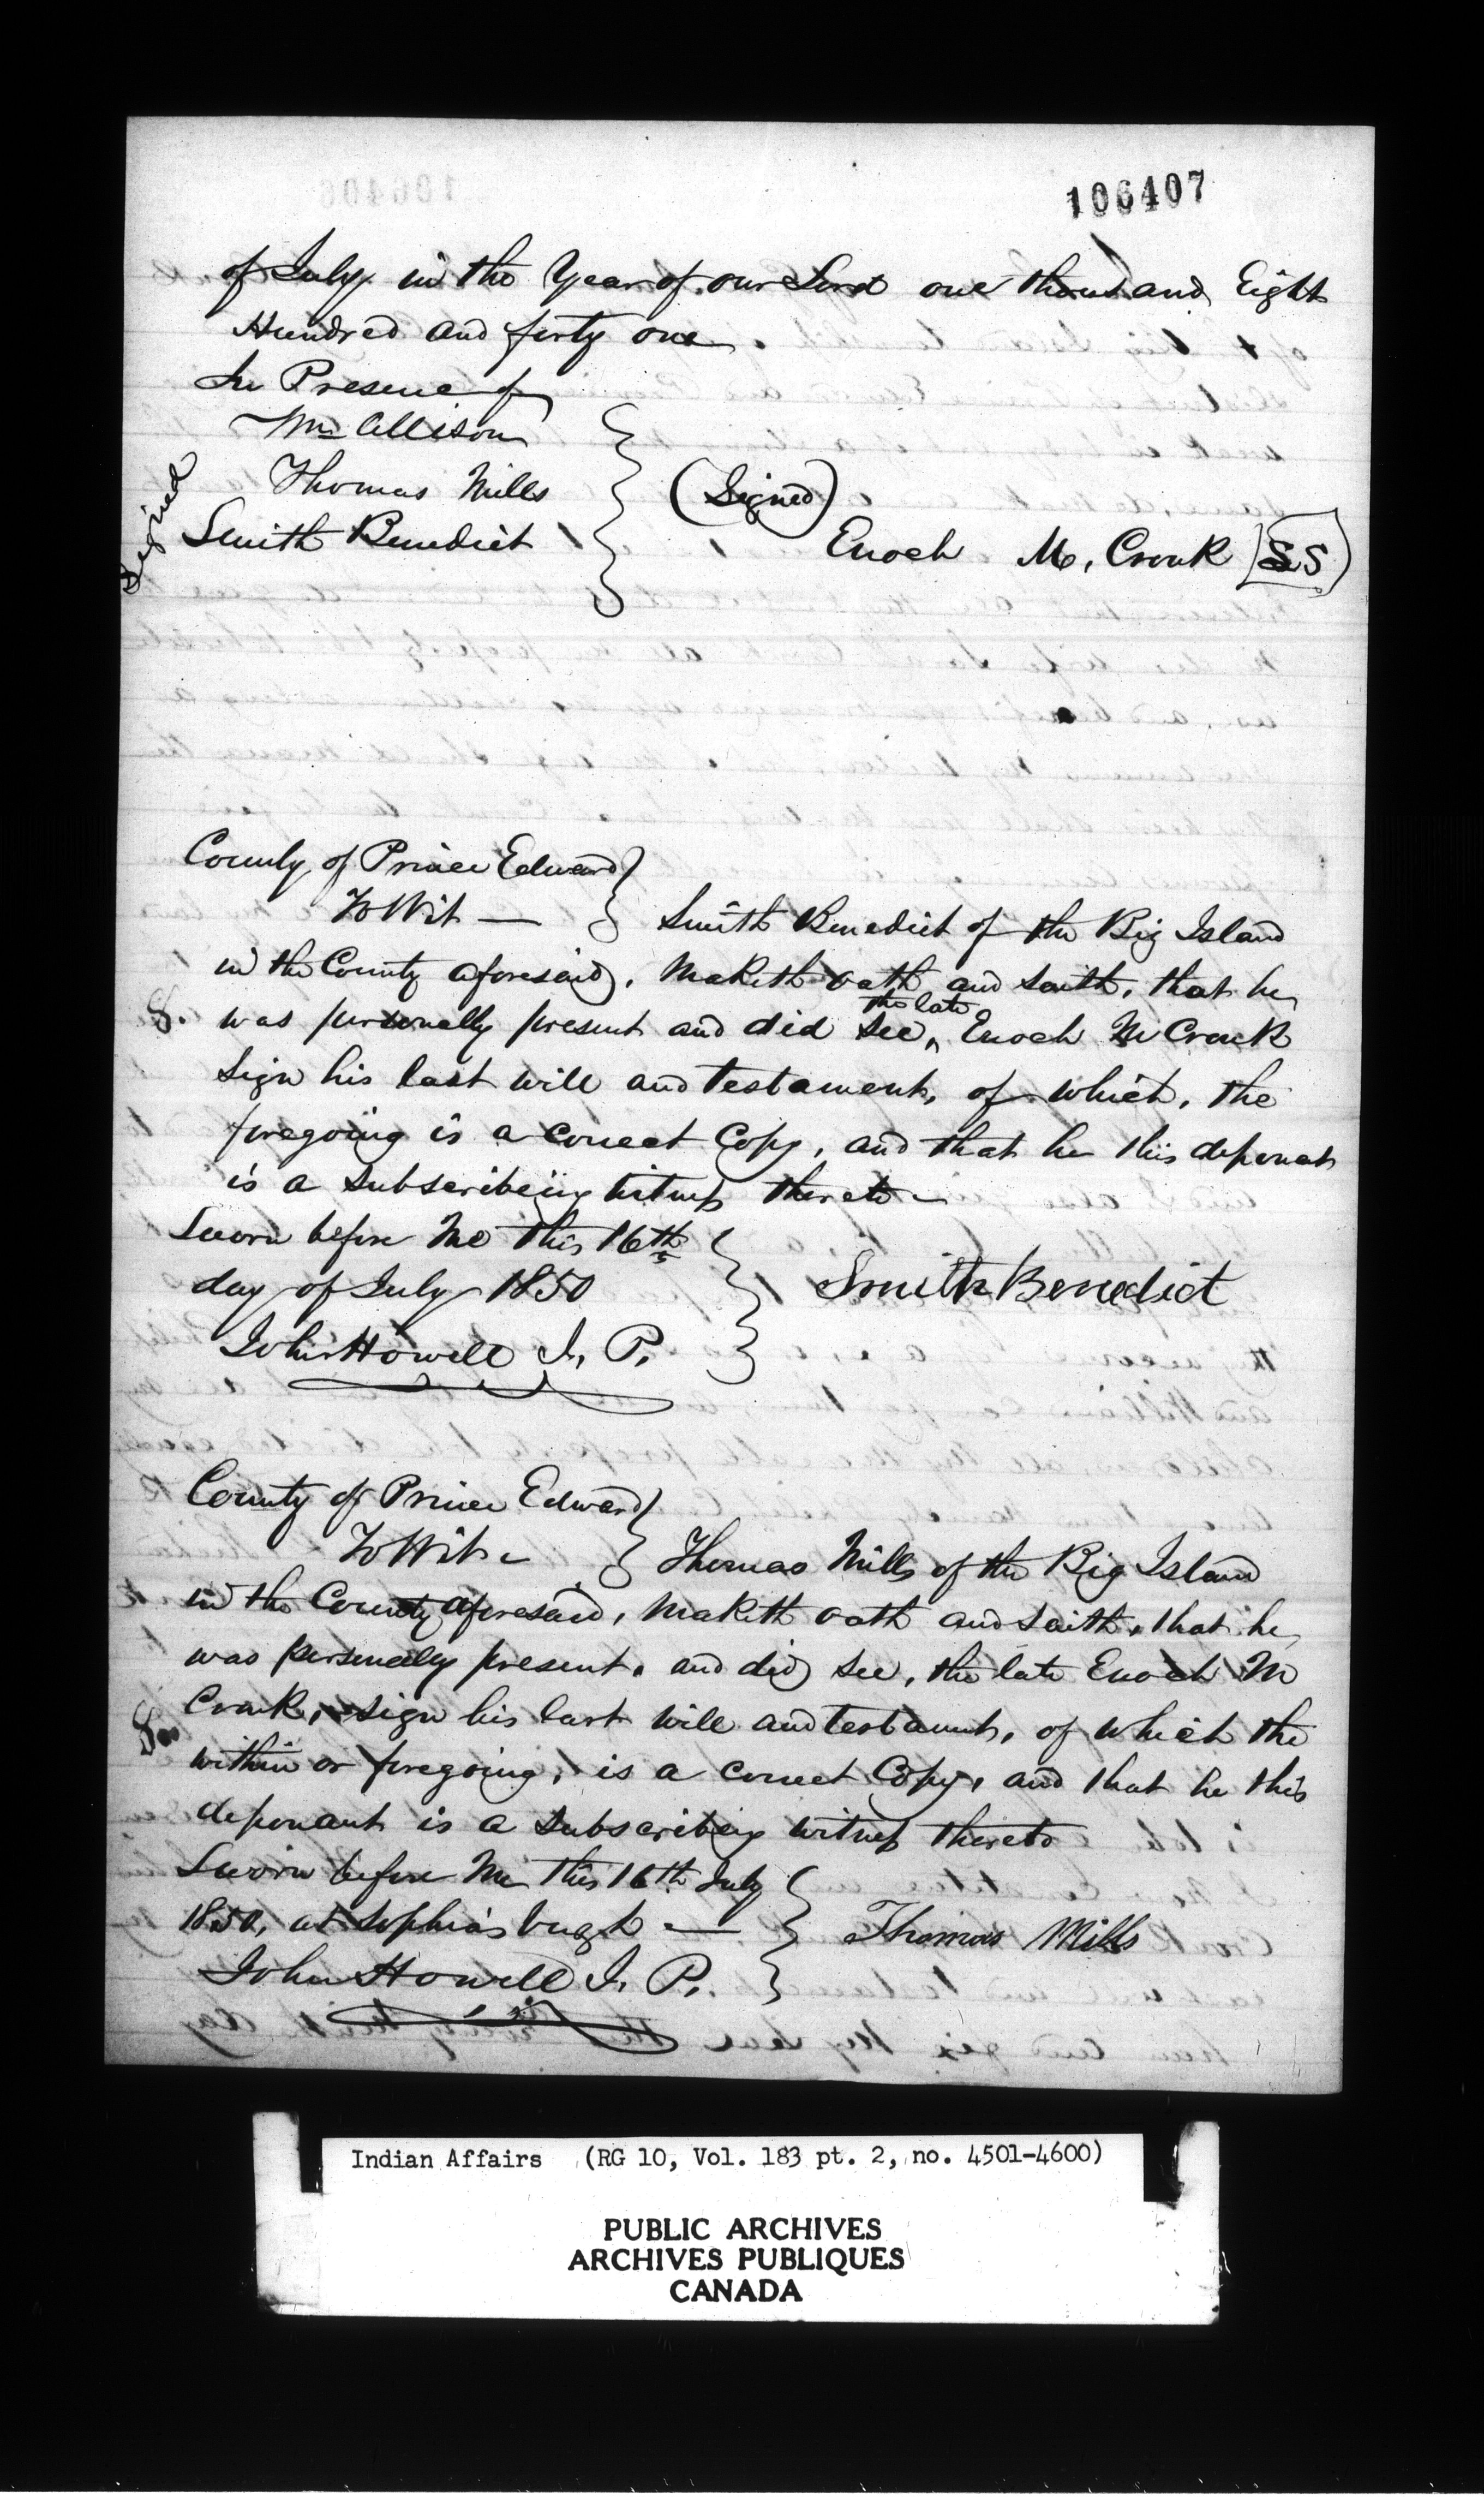 106407
of July in the Year of our Lord one thousand Eight
Hundred and forty one
In Presence of
Wm Allison
Thomas Mills
Signed
(Signed)
Smith Benedict
Enoch M, Cronk [LS]
County of Prince Edward }
To Wit — } Smith Benedict of the Big Island
in the County aforesaid, Maketh oath and saith, that he
S. was personally present and did see, the late Enoch M Cronk
Sign his last will and testament, of which, the
foregoing is a correct Copy, and that he this deponent
is a Subscribeing witness thereto
Sworn before Me this 16th
day of July 1850
Smith Benedict
John Howell J, P.
County of Prince Edward }
To Wit } Thomas Mills of the Big Island
in the County aforesaid, Maketh oath and saith, that he
was personally present, and did see, the late Enoch M
Cronk, sign his last will and testament, of which the
within or foregoing, is a correct Copy, and that he this
deponant is a Subscribing witness thereto
Sworn before Me this 16th July
1850, at Sophiasburgh —
Thomas Mills
John Howell J, P.
Indian Affairs (RG 10, Vol. 183 pt. 2, no. 4501-4600)
PUBLIC ARCHIVES
ARCHIVES PUBLIQUES
CANADA